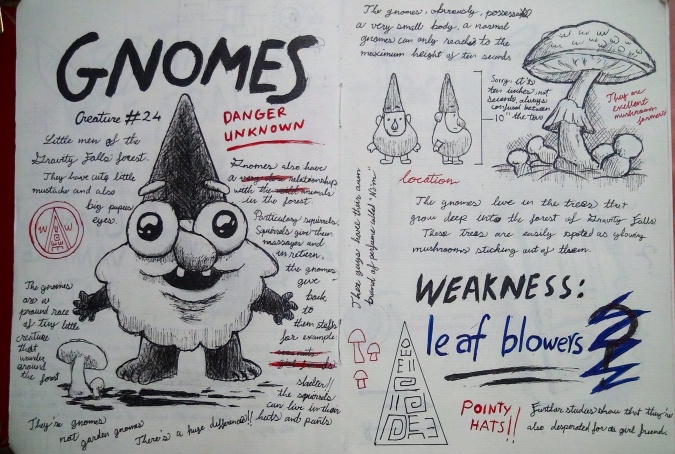 GNOMES
Creature #24
DANGER
UNKNOWN
Little men of the
Gravity Falls forest.
They have city little
mustache and also
big pupies
eyes.
Gnomes also have
a relationship
with the animals
in the forest.
Particulary squirrels.
Squirrels give them
massages and
in return,
the gnomes
give
back
to
them stuffs
for example
shelter//
the squirrels
can live in their
hats and pants
The gnomes
are a
pround race
of tiny little
creature
that
wander
around
the forest
They're gnomes
not garden gnomes
There's a huge difference!!
The gnomes, obviously, possessed
a very small body, a normal
gnomes can only reach to the
maximum height of ten seconds
Sorry, it's
ten inches, not
seconds, always
confused between
10" the two
They are
excellent
mushroom
farmers
These guys have their own
brand of perfume called
location
The gnomes live in the trees that
grow deep into the forest of Gravity Falls
These trees are easily spoted as glowing
mushrooms sticking out of them.
WEAKNESS:
leaf blowers ?
POINTY
HATS!!
Further studies show that they're
also desperated for a girl friend.